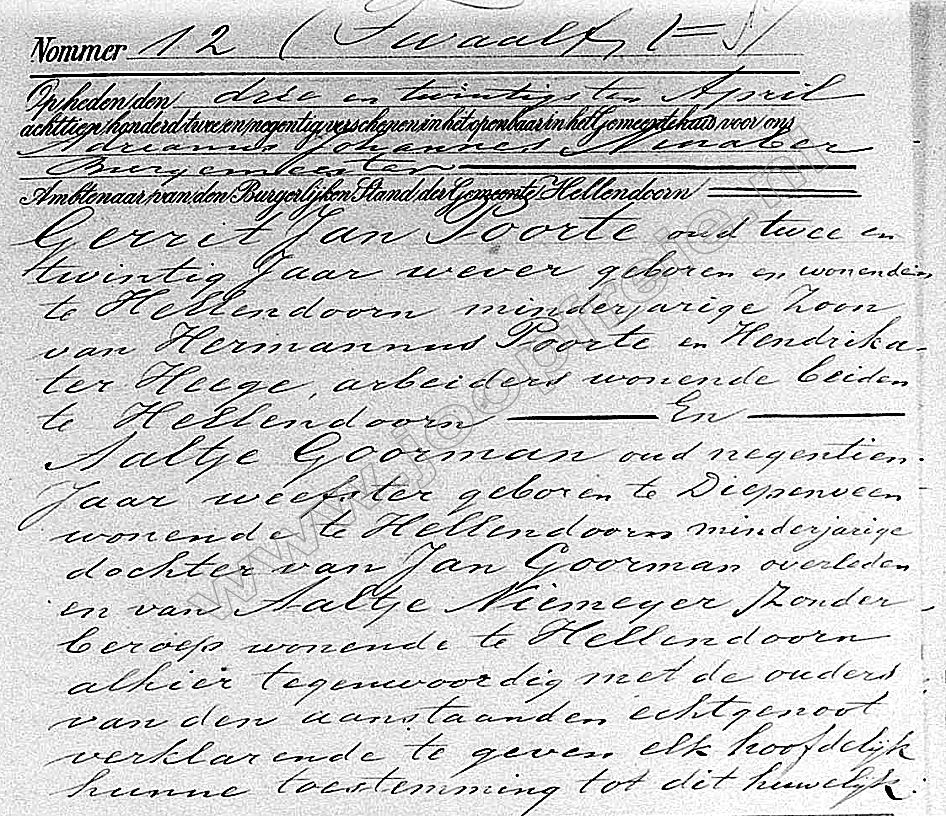 Nommer 12 (Twaalf)
Op heden den drie en twintigsten April
achttien honderd twee en negentig, verschenen in het openbaar in het Gemeentehuis voor ons
Adrianus Johannes
Burgemeester
Ambtenaar van den Burgerlijken Stand der Gemeente Hellendoorn
Gerrit Jan Poorte oud twee en
twintig Jaar wever geboren en wonende
te Hellendoorn minderjarige Zoon
van Hermannus Poorte en Hendrika
ter Heege, arbeiders wonende beiden
te Hellendoorn En
Aaltje Goorman oud negentien
Jaar weefster geboren te Diepenveen
wonende te Hellendoorn minderjarige
dochter van Jan Goorman overleden
en van Aaltje Niemeyer Zonder
beroep wonende te Hellendoorn
alhier tegenwoordig met de ouders
van den aanstaanden echtgenoot
verklarende te geven elk hoofdelijk
hunne toestemming tot dit huwelijk.
www.joopfreie.nl